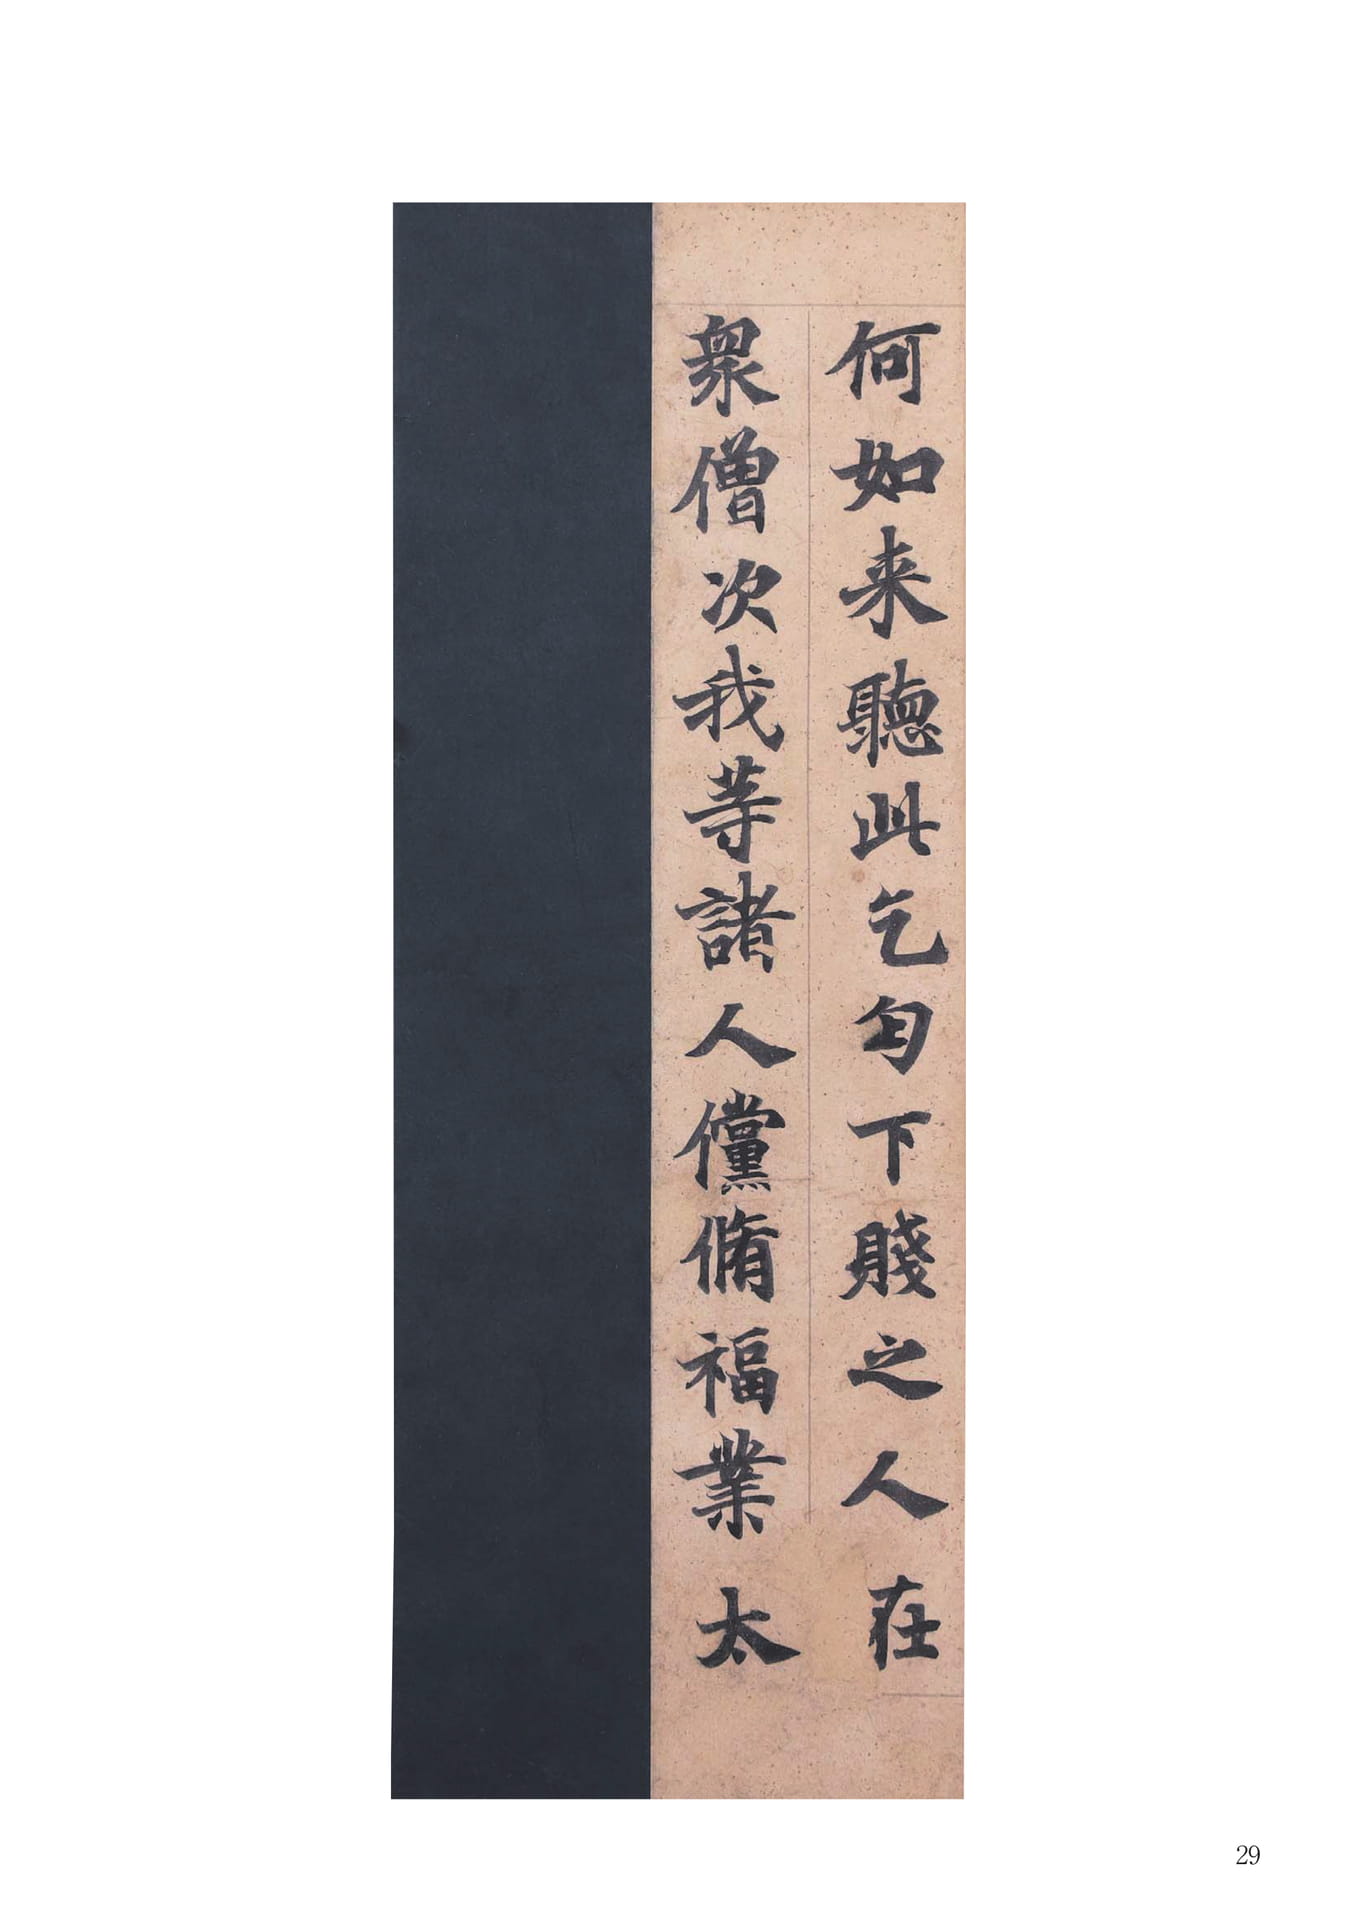 何如来聽此乞匃下賤之人在
衆僧次我等諸人儻脩福業太
29